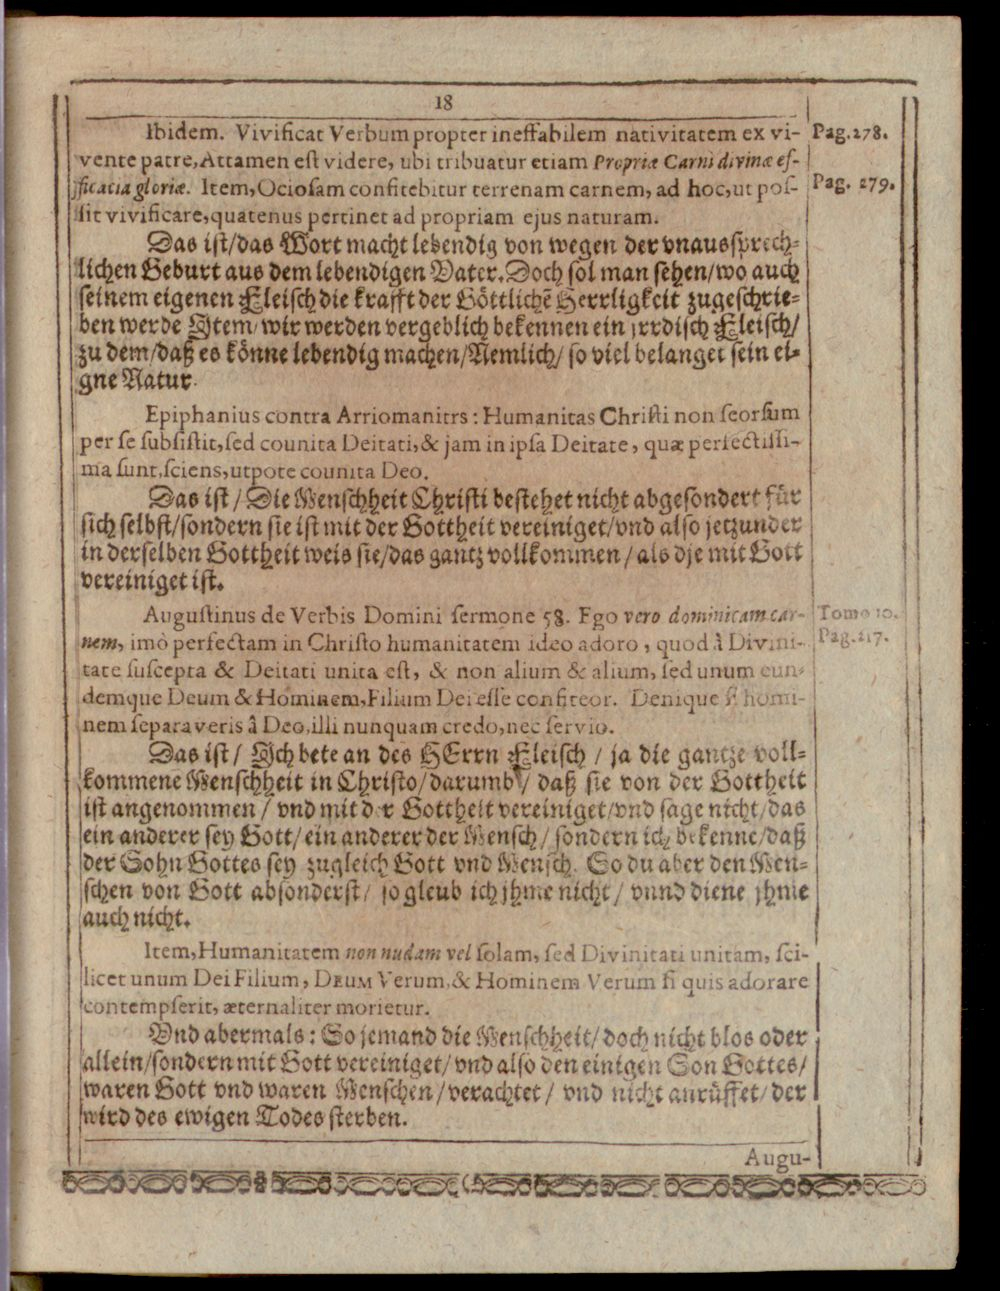 18
Ibidem. Vivificat Verbum propter ineffabilem nativitatem ex vi-
Pag. 278.
vente patre, Attamen est videre, ubi tribuatur etiam Propriæ Carni divinæ ef-
ficatia gloriæ. Item, Ociosam confitebitur terrenam carnem, ad hoc, ut pos-
Pag. 279.
sit vivificare, quatenus pertinet ad propriam ejus naturam.
Das ist/das Wort macht lebendig von wegen der vnaussprech-
lichen Geburt aus dem lebendigen Vater. Doch sol man sehen/wo auch
seinem eigenen Fleisch die krafft der Göttlichẽ Herrligkeit zugeschrie-
ben werde Jtem/wir werden vergeblich bekennen ein jrrdisch Fleisch/
zu dem/daß es könne lebendig machen/Nemlich/ so viel belanget sein ei-
gne Natur.
Epiphanius contra Arriomanitrs: Humanitas Christi non seorsum
per se subsistit, sed counita Deitati, & jam in ipsa Deitate, quæ perfectissi-
ma sunt, sciens, utpote counita Deo.
Das ist / Die Menschheit Christi bestehet nicht abgesondert für
sich selbst/sondern sie ist mit der Gottheit vereiniget/vnd also jetzunder
in derselben Gottheit weis sie/das gantz vollkommen / als dje mit Gott
vereiniget ist.
Augustinus de Verbis Domini sermone 58. Ego vero dominicam car-
Tomo 10.
nem, imò perfectam in Christo humanitatem ideo adoro, quod â Divini-
Pag. 217.
tate suscepta & Deitati unita est, & non alium & alium, sed unum eun-
demque Deum & Hominem, Filium Dei esse confiteor. Denique si homi-
nem separaveris â Deo, illi nunquam credo, nec servio.
Das ist/ Jch bete an des HErrn Fleisch / ja die gantze voll-
kommene Menschheit in Christo/darumb/ daß sie von der Gottheit
ist angenommen / vnd mit der Gottheit vereiniget/vnd sage nicht/das
ein anderer sey Gott/ein anderer der Mensch/ sondern ich bekenne/daß
der Sohn Gottes sey zugleich Gott vnd Mensch. So du aber den Men-
schen von Gott absonderst/ so gleub ich jhme nicht / vnnd diene jhme
auch nicht.
Item, Humanitatem non nudam vel solam, sed Divinitati unitam, sci-
licet unum Dei Filium, DEUM Verum, & Hominem Verum si quis adorare
contempserit, æternaliter morietur.
Vnd abermals: So jemand die Menschheit/doch nicht blos oder
allein/sondern mit Gott vereiniget/vnd also den einigen Son Gottes/
waren Gott vnd waren Menschen/verachtet/ vnd nicht anrüffet/der
wird des ewigen Todes sterben.
Augu-